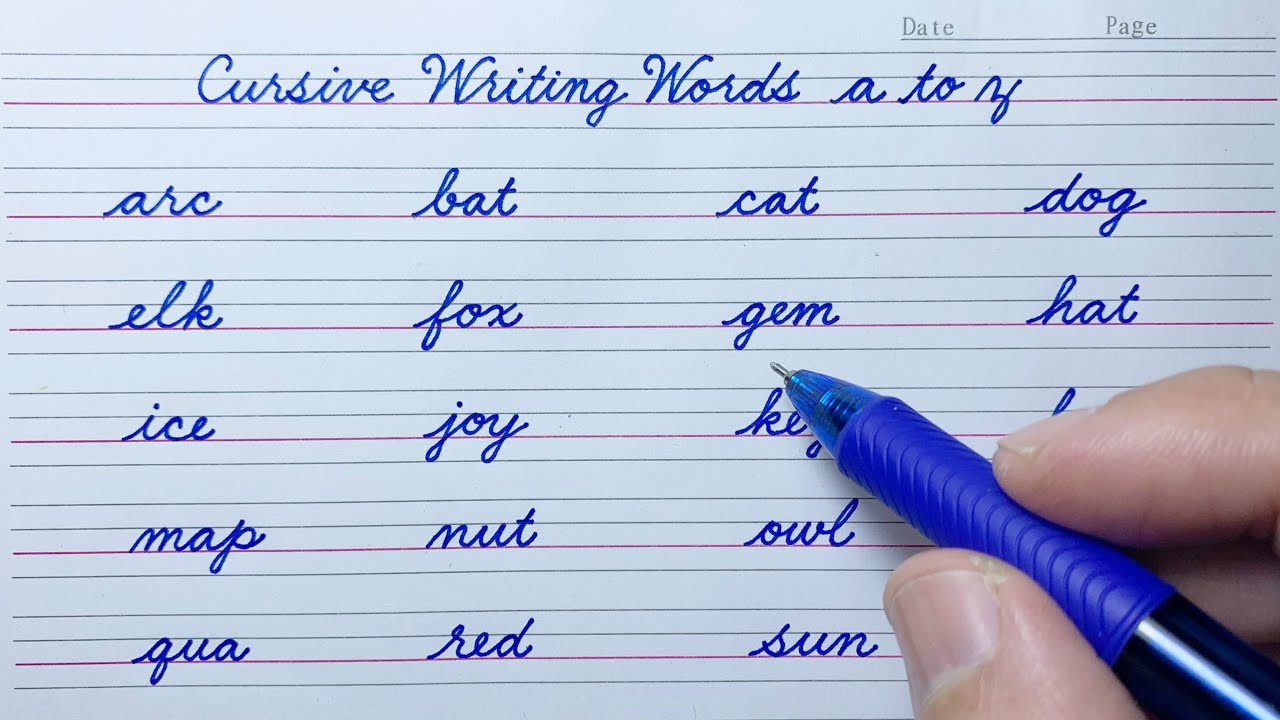 Date Page
Cursive Writing Words a to z
arc bat cat dog
elk fox gem hat
ice joy
map nut owl
qua red sun